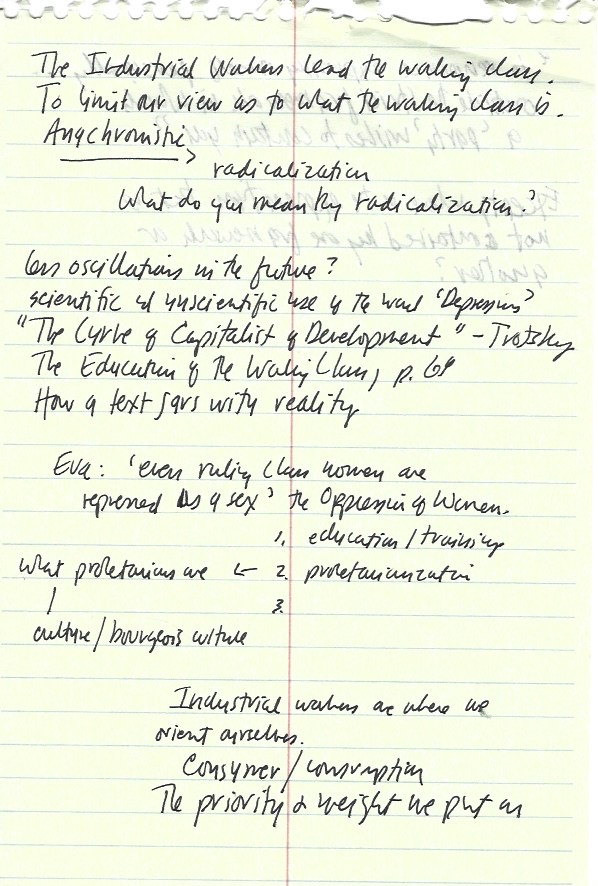 The Industrial Workers lead the working class.
To limit our view as to what the working class is.
Anachronistic
radicalization
What do you mean by radicalization?
less oscillations in the future?
scientific and unscientific use of the word 'Depression'
"The Curve of Capitalist of Development" - Trotsky
The Education of the Working Class, p. 69
How a text jars with reality
Eva: 'even ruling class women are
repressed as a sex' the Oppression of Women.
1. education/training
what proletarians are ← 2. proletarianization
3.
culture/bourgeois culture
Industrial workers are where we
orient ourselves.
Consumer/consumption
The priority & weight we put on